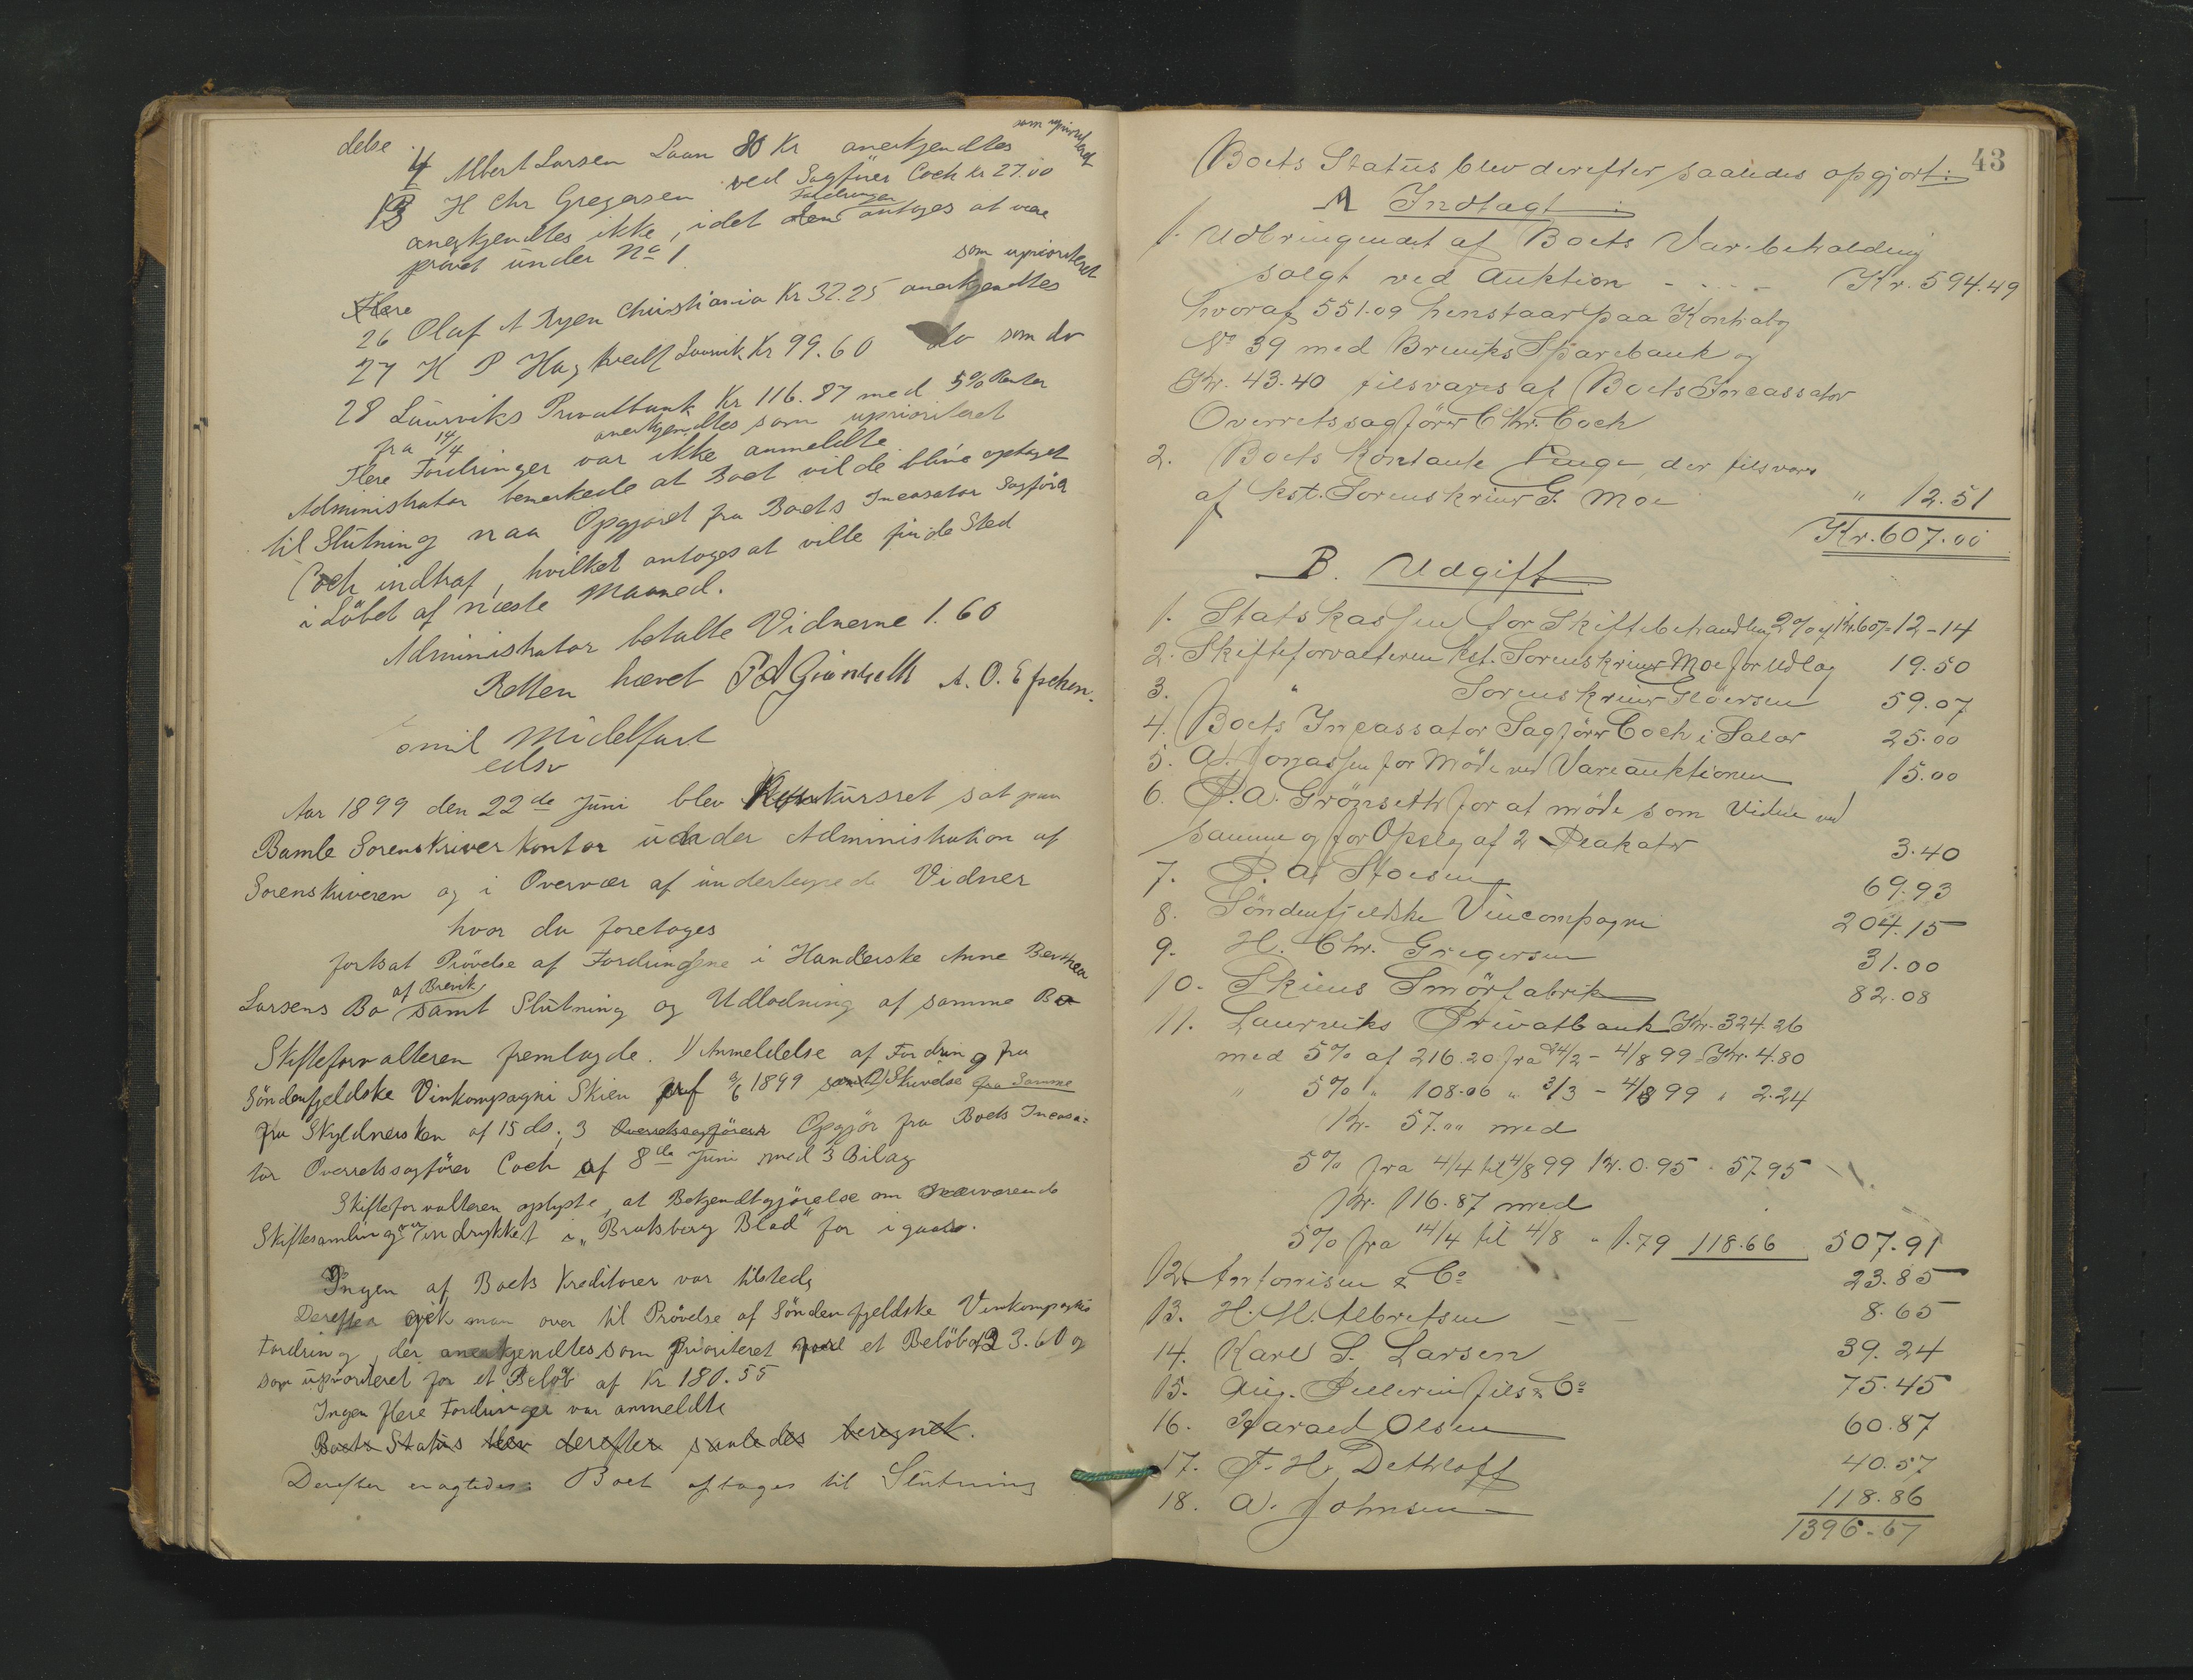 delse
4 Albert Larsen Laan 80 Kr anerkjendtes som uprioriteret
13 H Chr Gregersen ved Sagfører Coch Kr 27.00
anerkjendtes ikke, idet Fordringen antages at være
prövet under No 1.
Flere
26 Oluf A Ryen Christiania Kr 32.25 anerkjendtes som uprioriteret
27 H P Hag Laurvik Kr 99.60 do som do
28 Laurviks Privatbank Kr 116.87 med 5% Renter
fra 14/4 anerkjendtes som uprioriteret
Flere Fordringer var ikke anmeldte.
Administrator bemerkede at Boet vilde blive optaget
til Slutning naar Opgjøret fra Boets Incasator Sagfører
Coch indtraf, hvilket antoges at ville finde Sted
i Löbet af næste Maaned.
Administrator betalte Vidnerne 1.60
Retten hævet P A Grönseth A. O. Eschen.
Emil Midelfart
edsv
Aar 1899 den 22de Juni blev Skifteretten sat paa
Bamle Sorenskriverkontor under Administration af
Sorenskriveren og i Overvær af undertegnede Vidner
hvor da foretoges
fortsat Prövelse af Fordringene i Handlerske Anne Berthea
Larsens Bo af Brevik samt Slutning og Udlodning af samme Bo
Skifteforvalteren fremlagde. 1) Anmeldelse af Fordring fra
Söndenfjeldske Vinkompagni Skien af 3/6 1899 samt 2) Skrivelse fra Samme
fra Skyldnersken af 15 ds. 3 Overretssagförer Opgjör fra Boets Incasa-
tor Overretssagförer Coch af 8de Juni med 3 Bilag
Skifteforvalteren oplyste, at Bekjendtgjörelse om nærværende
Skiftesamling var indrykket i "Bratsberg Blad" for igaar.
Ingen af Boets Kreditorer var tilstede
Derefter gik man over til Prövelse af Söndenfjeldske Vinkompagnis
Fordring, der anerkjendtes som prioriteret for et Belöb af 23.60 og
som uprioriteret for et Belöb af Kr 180.55
Ingen flere Fordringer var anmeldte
Boets Status blev derefter saaledes beregnet.
Derefter eragtedes: Boet optages til Slutning
43
Boets Status blev derefter saaledes opgjort:
A Indtægt:
1. Udbringendet af Boets Varebeholdning
solgt ved Auktion - - - - Kr. 594.49
hvoraf 551.09 henstaar paa Kontrabog
No 39 med Breviks Sparebank og
Kr. 43.40 tilsvares af Boets Incassator
Overretssagförer Chr. Coch
2. Boets Kontante Penge, der tilsvares
af kst. Sorenskriver G. Moe " 12.51
Kr. 607.00
B. Udgift
1. Statskassen for Skiftebehandling 2% af Kr. 607 = 12-14
2. Skifteforvalteren kst. Sorenskriver Moe for Udlæg 19.50
3. " Sorenskriver Gløersen 59.07
4. Boets Incassator Sagförer Coch i Salær 25.00
5. A. Jonassen for Möde ved Vareauktionen 15.00
6. P. A. Grönseth for at möde som Vidne ved
samme og for Opslag af 2 Plakater 3.40
7. P. A. Stoesen 69.93
8. Söndenfjeldske Vincompagni 204.15
9. H. Chr. Gregersen 31.00
10. Skiens Smörfabrik 82.08
11. Laurviks Privatbank Kr. 324.26
med 5% af 216.20 fra 24/2 - 4/8 99 Kr. 4.80
" 5% " 108.06 " 3/3 - 4/8 99 " 2.24
Kr. 57.00 med
5% fra 4/4 til 4/8 99 Kr. 0.95 - 57.95
Kr. 116.87 med
5% fra 14/4 til 4/8 " 1.79 118.66 507.91
12. Antonisen & Co 23.85
13. H. M. Albretsen - - 8.65
14. Karl S. Larsen 39.24
15. Aug. Pellerin fils & Co 75.45
16. Harald Olsen 60.87
17. F. H. Dethloff 40.57
18. A. Johnsen 118.86
1396.67